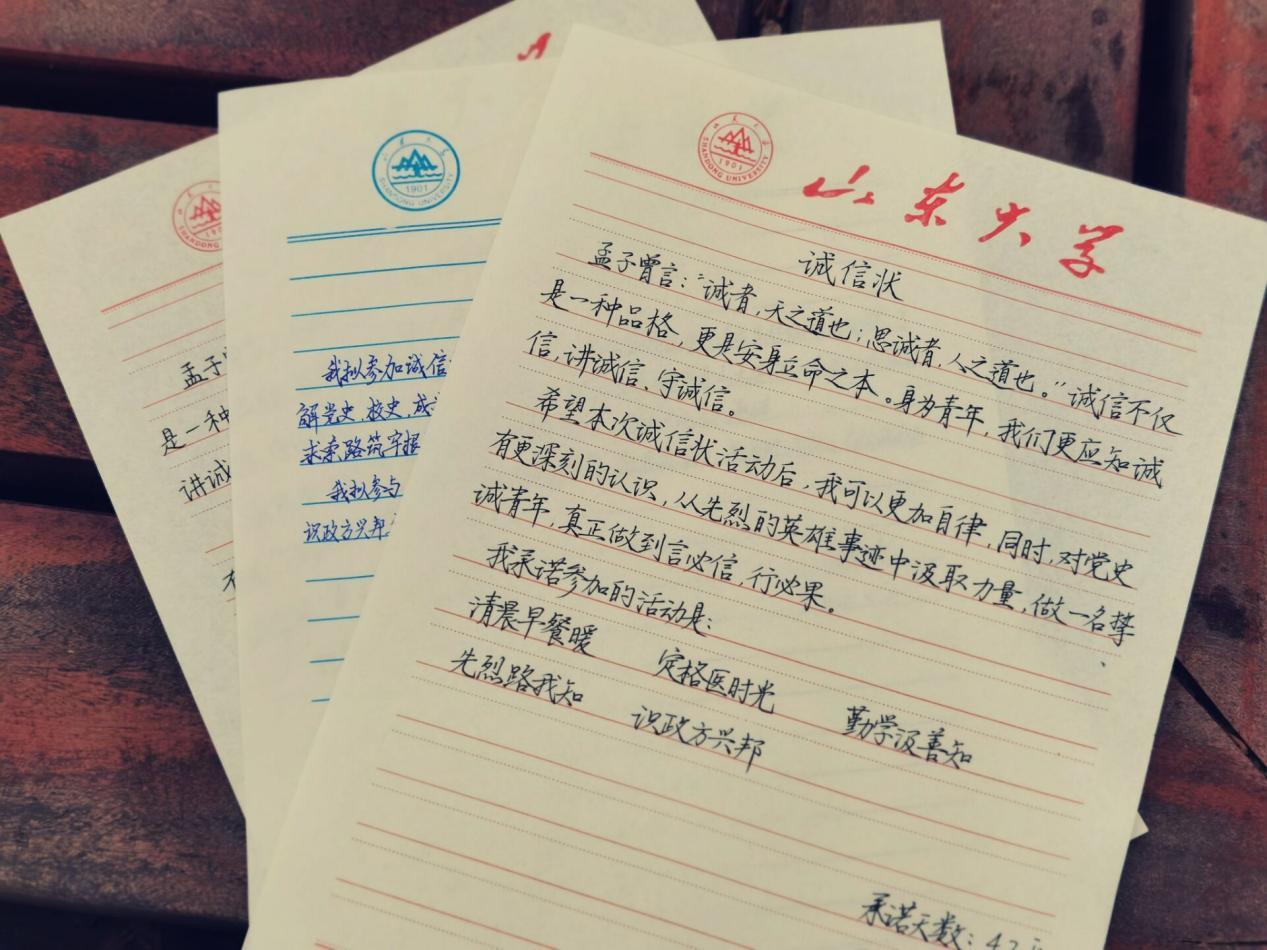 山东大学
SHANDONG UNIVERSITY
1901
诚信状
孟子曾言：“诚者，天之道也；思诚者，人之道也。”诚信不仅
是一种品格，更是安身立命之本。身为青年，我们更应知诚
信，讲诚信、守诚信。
希望本次诚信状活动后，我可以更加自律，同时，对党史
有更深刻的认识，从先烈的英雄事迹中汲取力量，做一名挚
诚青年，真正做到言必信，行必果。
我承诺参加的活动是：
清晨早餐暖 定格医时光 勤学汲善知
先烈路我知 识政方兴邦
承诺天数：42
1901
SHANDONG UNIVERSITY
我拟参加诚信
解党史、校史，成
求索路筑字
我拟参与
识政方兴邦
SHANDONG
孟子
是一种
讲诚